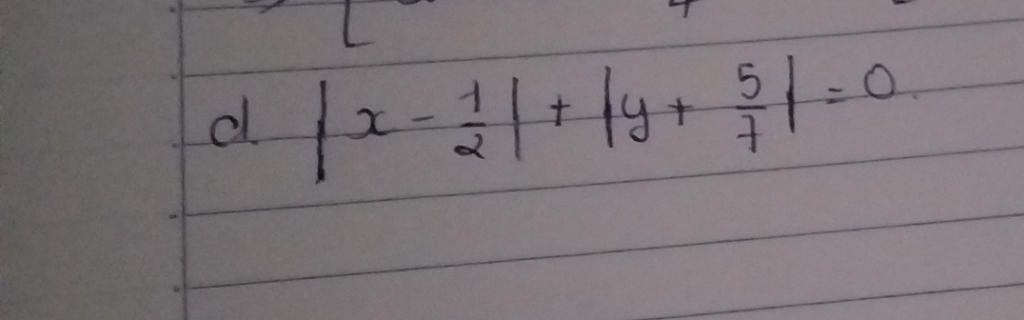 d |x - 1/2| + |y + 5/7| = 0